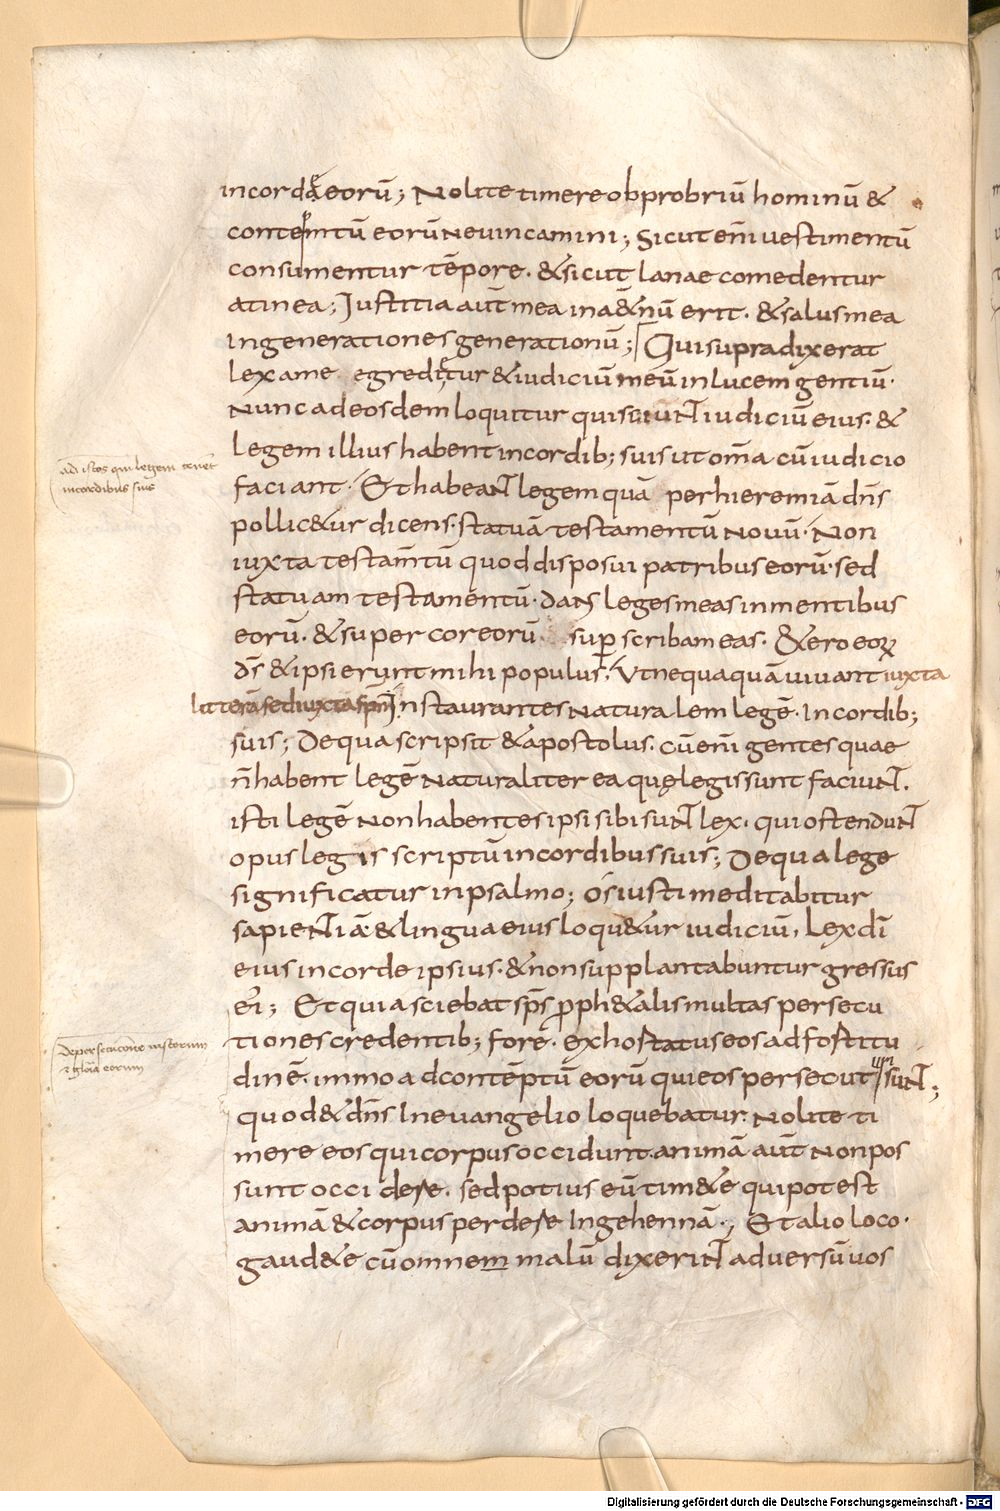 in corde eorū; Nolite timere obprobriū hominū &
contemptū eorū ne vincamini; Sicut eni vestimentū
consumentur tēpore. & sicut lanae comedentur
a tinea; Justitia aut mea in a&nū erit. & salus mea
in generationes generationū; Qui supra dixerat
lex a me egreditur & iudiciū meū in lucem gentiū.
Nunc ad eosdem loquitur qui sciunt iudiciū eius. &
legem illius habent in cordib; suis ut oma cū iudicio
ad istos qui legem tenēt
in cordibus suis
faciant. Et habeant legem quā per hieremiā dns
pollic&ur dicens. statuā testamentū novū. Non
iuxta testamtū quod disposui patribus eorū. sed
statuam testamentū. dans leges meas in mentibus
eorū. & super cor eorū sup scribam eas. & ero eoꝝ
ds & ipsi erunt mihi populus. Ut nequaquā uiuant iuxta
litterā sed iuxta spm Instaurantes naturalem legē. In cordib;
suis; De qua scripsit & apostolus. cū eni gentes quae
n habent legē naturaliter ea quę legis sunt faciunt.
isti legē non habentes ipsi sibi sunt lex. qui ostendunt
opus legis scriptū in cordibus suis; De qua lege
significatur in psalmo; Os iusti meditabitur
sapientiā & lingua eius loqu&ur iudiciū. Lex di
eius in corde ipsius. & non supplantabuntur gressus
ei; Et quia sciebat sps proph&alis multas persecu
tiones credentib; fore. exhortatus eos ad fortitu
de persecucione iustorum
& gloia eorum
dinē. immo ad contēptū eorū qui eos persecuturi sunt;
quod & dns In evangelio loquebatur. Nolite ti
mere eos qui corpus occidunt. animā aut non pos
sunt occidere. sed potius eū tim&e qui potest
animā & corpus perdere In gehennā; Et alio loco.
gaud&e cū omnem malū dixerint adversū vos
Digitalisierung gefördert durch die Deutsche Forschungsgemeinschaft - DFG